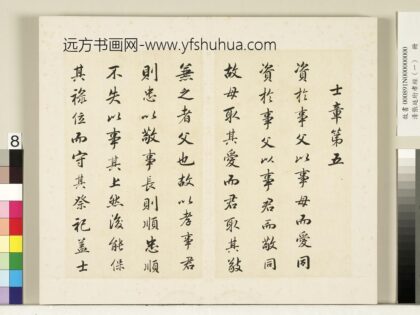 远方书画网-www.yfshuhua.com
士章第五
資於事父以事母而愛同
資於事父以事君而敬同
故母取其愛而君取其敬
兼之者父也故以孝事君
則忠以敬事長則順忠順
不失以事其上然後能保
其祿位而守其祭祀蓋士
故書000891N000000000
8